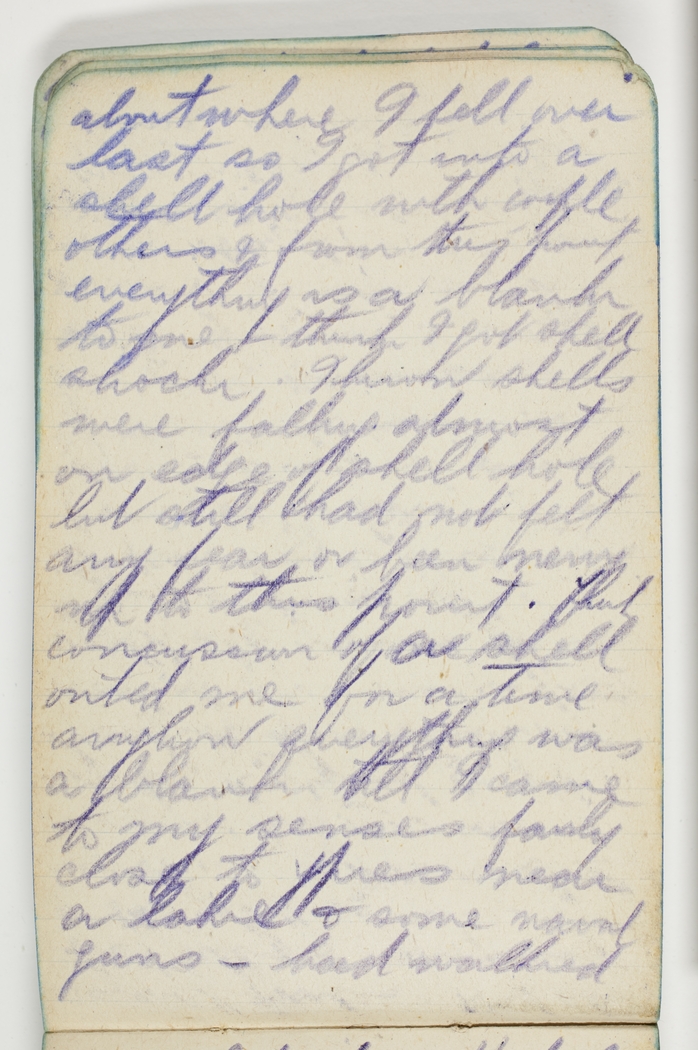 about where I fell over
last so I got into a
shell hole with couple
others & from this point
everything is a blank
to me I think I got shell
shock. I know shells
were falling almost
on edge of shell hole
but still had not felt
any fear or been nervy
up to this point. But
concussion of one shell
outed me for a time
anyhow everything was
a blank till I came
to my senses fairly
close to Ypres near
a lake & some naval
guns – had walked